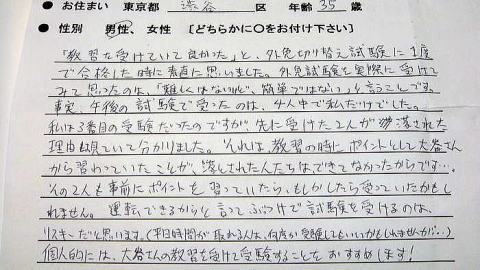 ● お住まい 東京都 渋谷 区 年齢 35 歳
● 性別 男性、女性 [どちらかに○をお付け下さい]
「教習を受けていて良かった」と、外免切り替え試験に1度
で合格した時に素直に思いました。外免試験を実際に受けて
みて思ったのは、「難しくはないけど、簡単ではない」と言うことです。
事実、午後の試験で受ったのは、4人中で私だけでした。
私は3番目の受験だったのですが、先に受けた2人が落とされた
理由ついて分かりました。それは、教習の時にポイントとして大谷さん
から習っていたことが、落とされた人たちは、できてなかったからです…。
その2人も事前にポイントを習っていたら、もしかしたら受っていたかもし
れません。運転できるからと言ってぶっつけで試験を受けるのは、
リスキーだと思います。(平日時間が取れる人は、何度か受験してもいいかもしれませんが…)
個人的には、大谷さんの教習を受けて受験することをおすすめします!